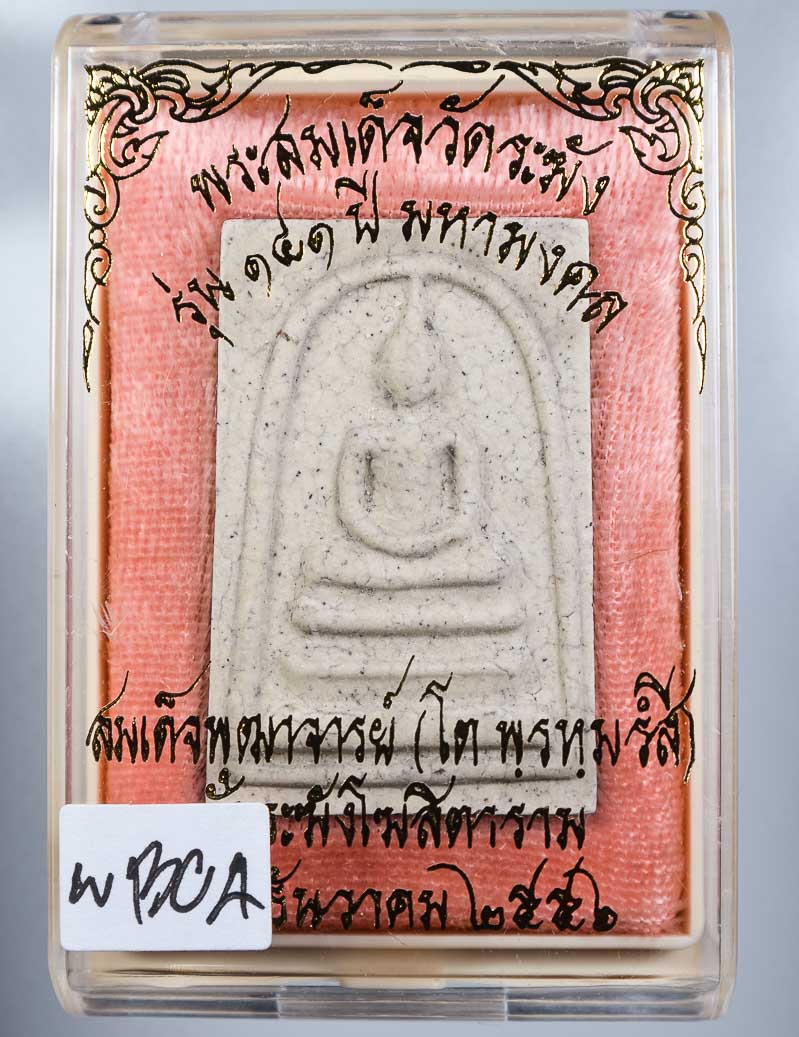 พระสมเด็จวัดระฆัง
รุ่น ๑๔๑ ปี มหามงคล
สมเด็จพุฒาจารย์ (โต พฺรหฺมรํสี)
ระฆังโฆสิตาราม
ธันวาคม ๒๕๕๖
WBCA